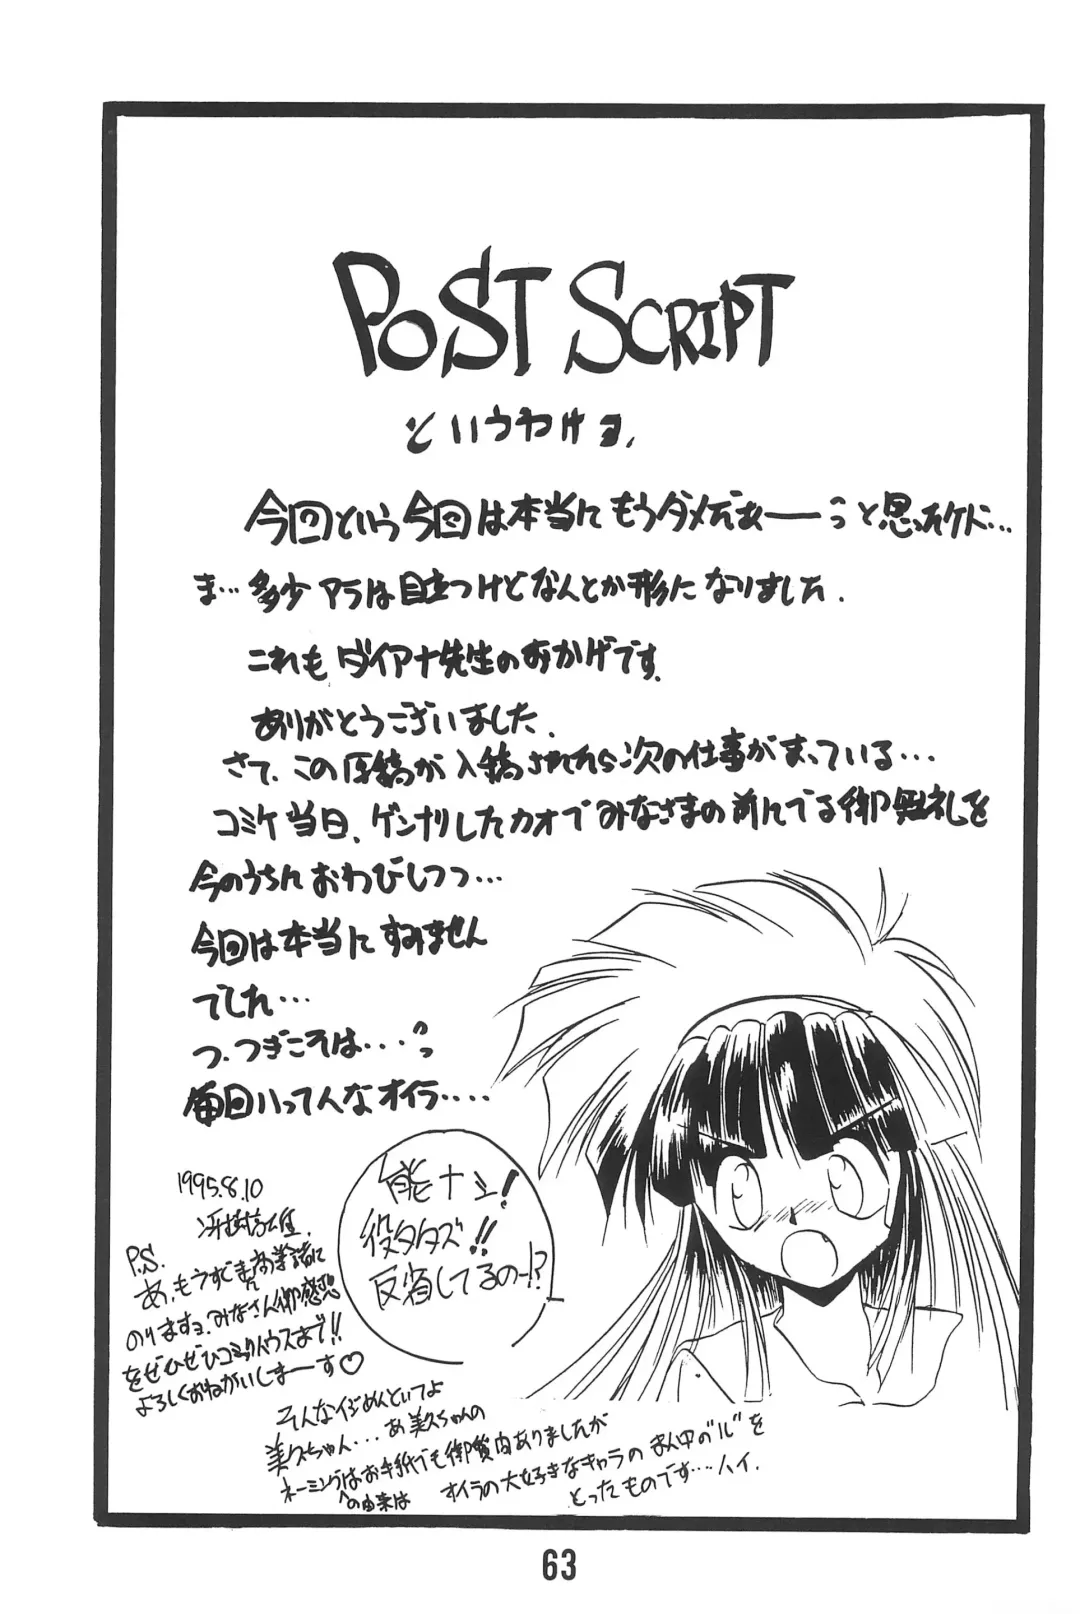 POST SCRIPT
というわけヨ、
今回という今回は本当にもうダメだぁーーっと思ったケド…
ま…多少アラは目立つけどなんとか形になりました。
これもダイアナ先生のおかげです。
ありがとうございました。
さて、この原稿が入稿されたら次の仕事がまっている…
コミケ当日、ゲンナリしたカオでみなさまの前んでる御無礼を
今のうちんおわびしつつ…
今回は本当にすみません
でした…
つ、つぎこそは…っ
毎回いってんなオイラ‥‥
能ナシ!
役タタズ!!
反省してるのー!?
1995.8.10
P.S.
あ、もうすぐまん
のりますヨ。みなさん御感想
をぜひぜひコミックハウスまで!!
よろしくおねがいしまーす♡
そんなイジめんといてよ
美久ちゃん…あ美久ちゃんの
ネーミングはお手紙でも御質問ありましたが
への由来は オイラの大好きなキャラのまん中の"ル"を
とったものです…ハイ.
63